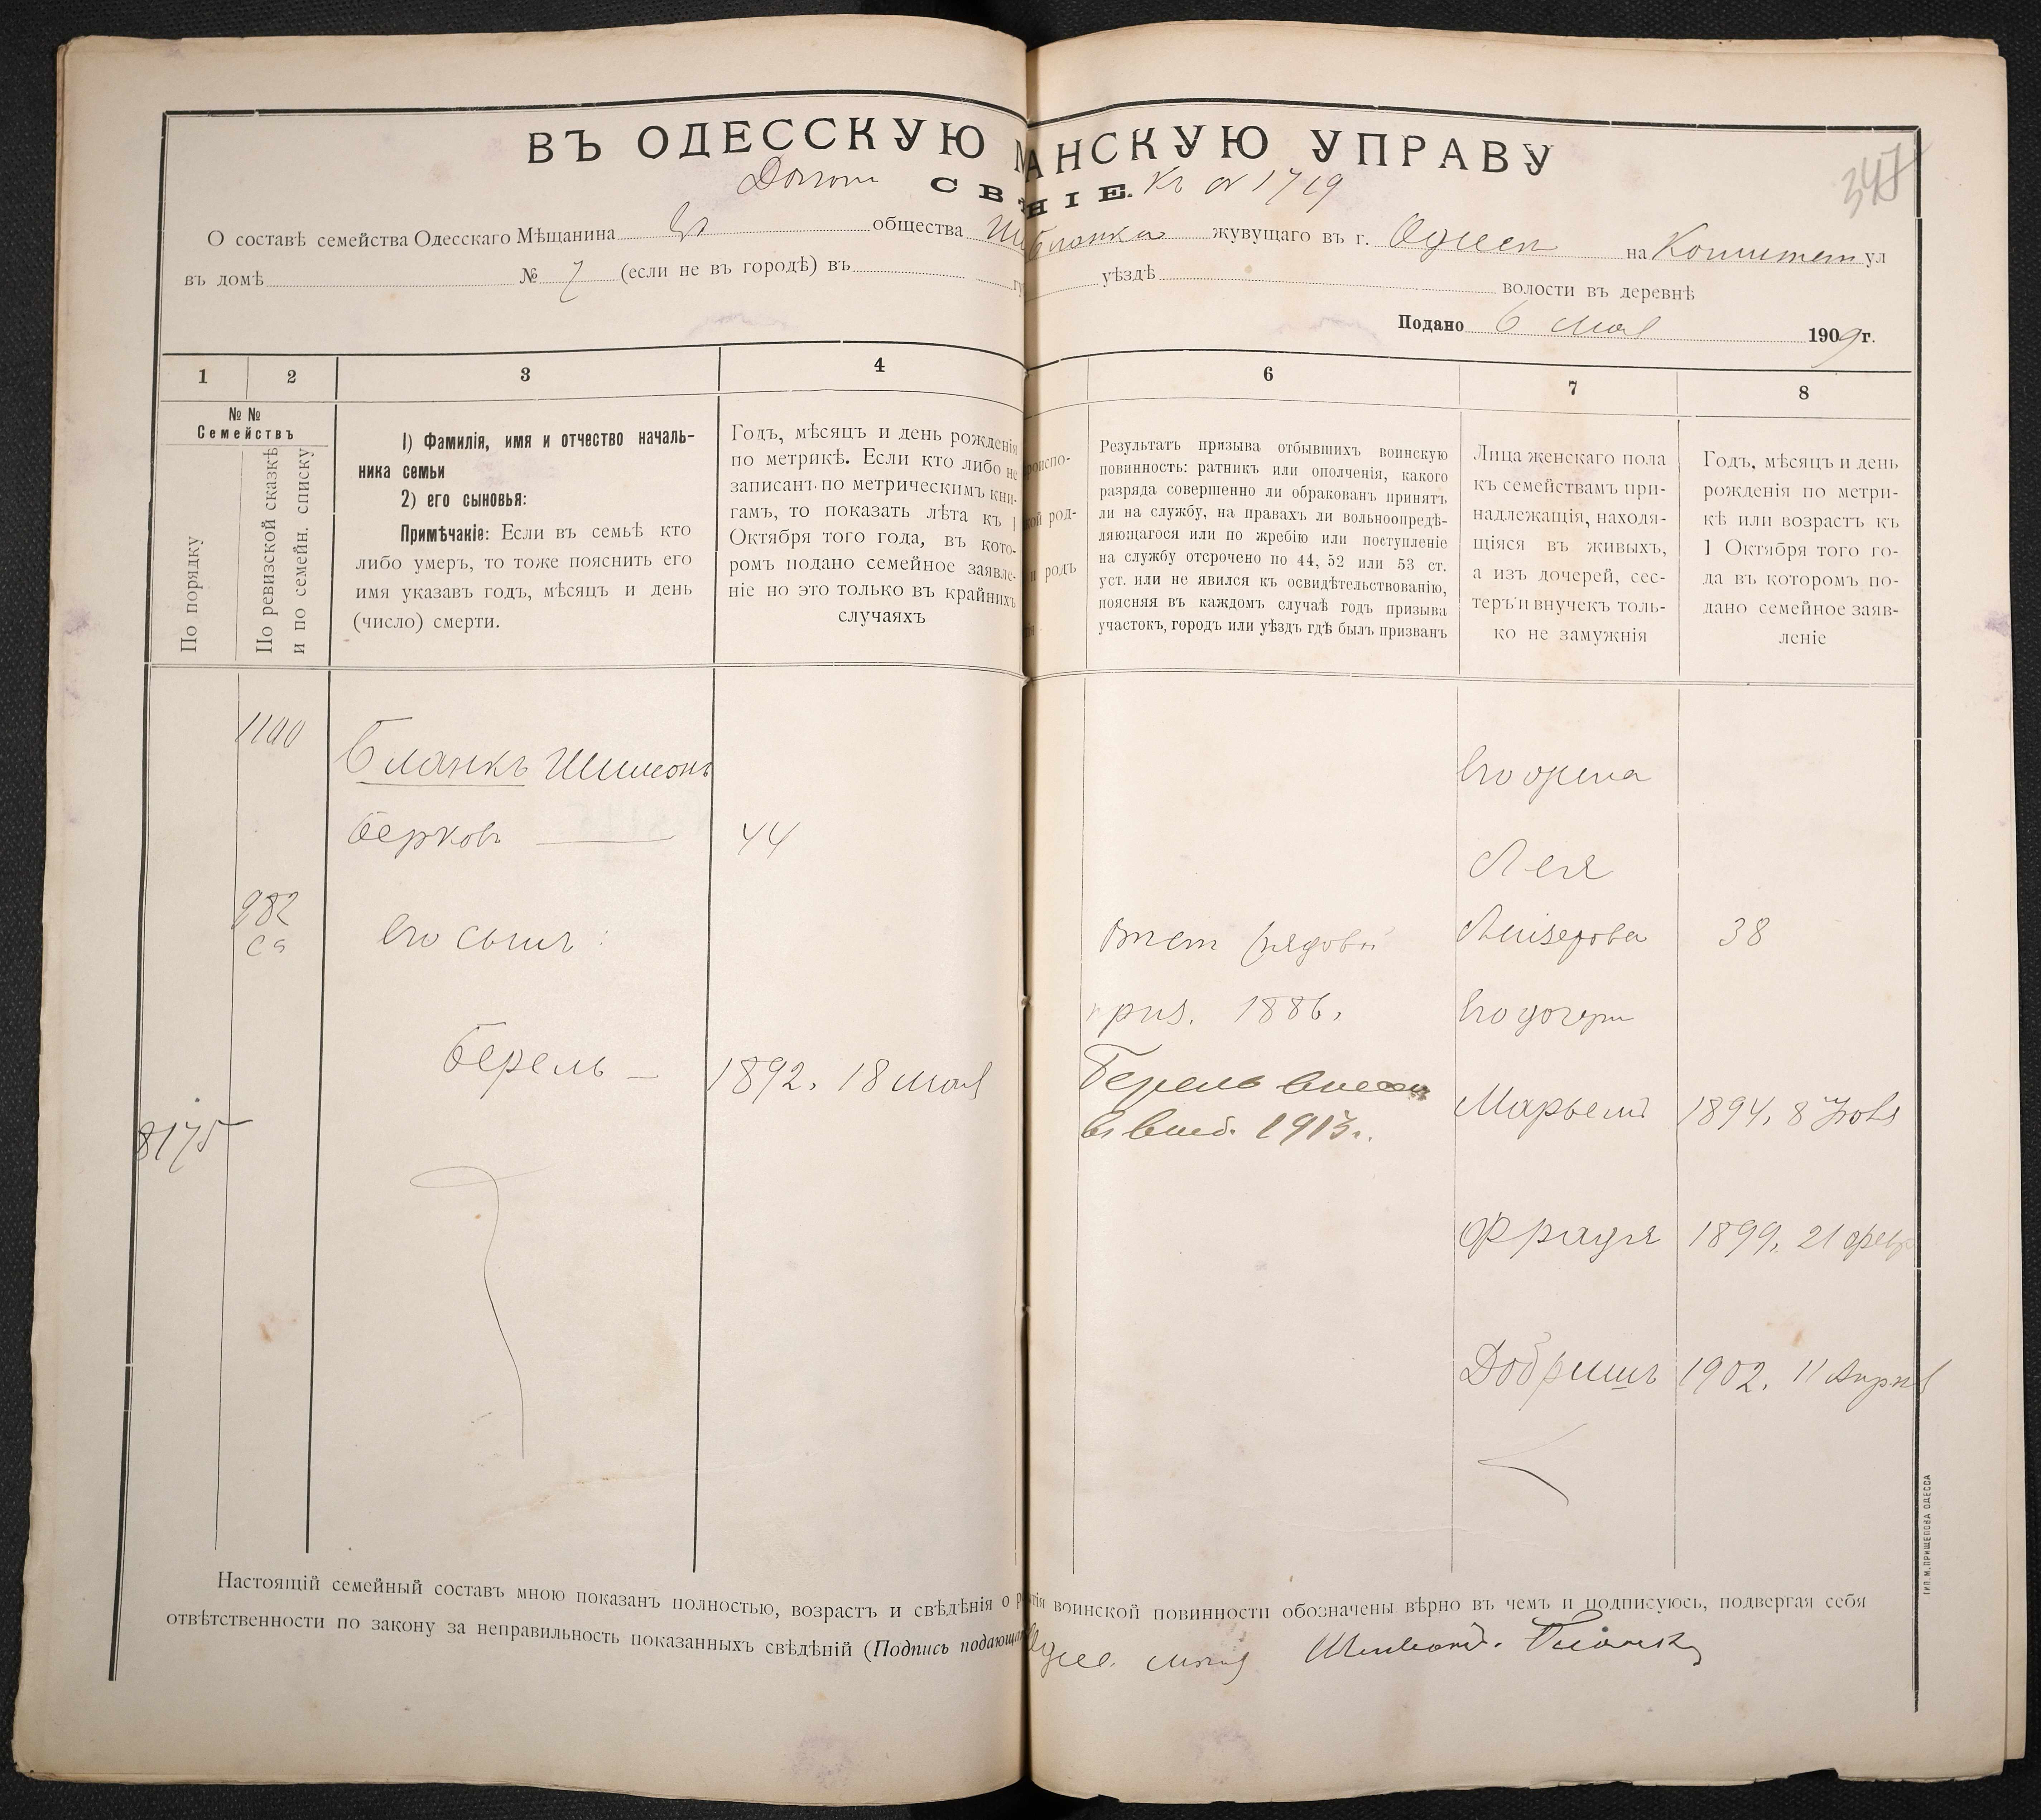 347
ВЪ ОДЕССКУЮ АНСКУЮ УПРАВУ
СВ НІЕ. къ № 1719
О составѣ семейства Одесскаго Мѣщанина Ев общества Ши Бланка жувущаго въ г. Одессѣ на Комитет ул
въ домѣ № 7 (если не въ городѣ) въ уѣздѣ волости въ деревнѣ
Подано 6 мая 1909 г.
1 2 3 4 6 7 8
№№
Семействъ
По порядку
По ревизской сказкѣ
и по семейн. списку
1) Фамилія, имя и отчество началь-
ника семьи
2) его сыновья:
Примѣчакіе: Если въ семьѣ кто
либо умеръ, то тоже пояснить его
имя указавъ годъ, мѣсяцъ и день
(число) смерти.
Годъ, мѣсяцъ и день рожденія
по метрикѣ. Если кто либо не
записанъ по метрическимъ кни-
гамъ, то показать лѣта къ 1
Октября того года, въ кото-
ромъ подано семейное заявле-
ніе но это только въ крайнихъ
случаяхъ
Результатъ призыва отбывшихъ воинскую
повинность: ратникъ или ополченія, какого
разряда совершенно ли обракованъ принятъ
ли на службу, на правахъ ли вольноопредѣ-
ляющагося или по жребію или поступленіе
на службу отсрочено по 44, 52 или 53 ст.
уст. или не явился къ освидѣтельствованію,
поясняя въ каждомъ случаѣ годъ призыва
участокъ, городъ или уѣздъ гдѣ былъ призванъ
Лица женскаго пола
къ семействамъ при-
надлежащія, находя-
щіяся въ живыхъ,
а изъ дочерей, сес-
теръ и внучекъ толь-
ко не замужнія
Годъ, мѣсяцъ и день
рожденія по метри-
кѣ или возрастъ къ
1 Октября того го-
да въ которомъ по-
дано семейное заяв-
леніе
1100
Бланкъ Шимонъ
Берковъ 44
982
Его сынъ:
Берель — 1892. 18 мая
8175
отст рядовой
приз. 1886.
Берель внесен
въ 1913.
Его жена
Лея
Лейзерова 38
Его дочери
Марьемъ 1894. 8 Ноя
Фрадя 1899. 21 февр
Добришъ 1902. 11 Апрѣля
Настоящій семейный составъ мною показанъ полностью, возрастъ и свѣдѣнія о воинской повинности обозначены вѣрно въ чемъ и подписуюсь, подвергая себя
отвѣтственности по закону за неправильность показанныхъ свѣдѣній (Подпись подающа Одес. мѣщ Шимонъ Бланкъ
ТИП. М. ПРИЩЕПОВА ОДЕССА